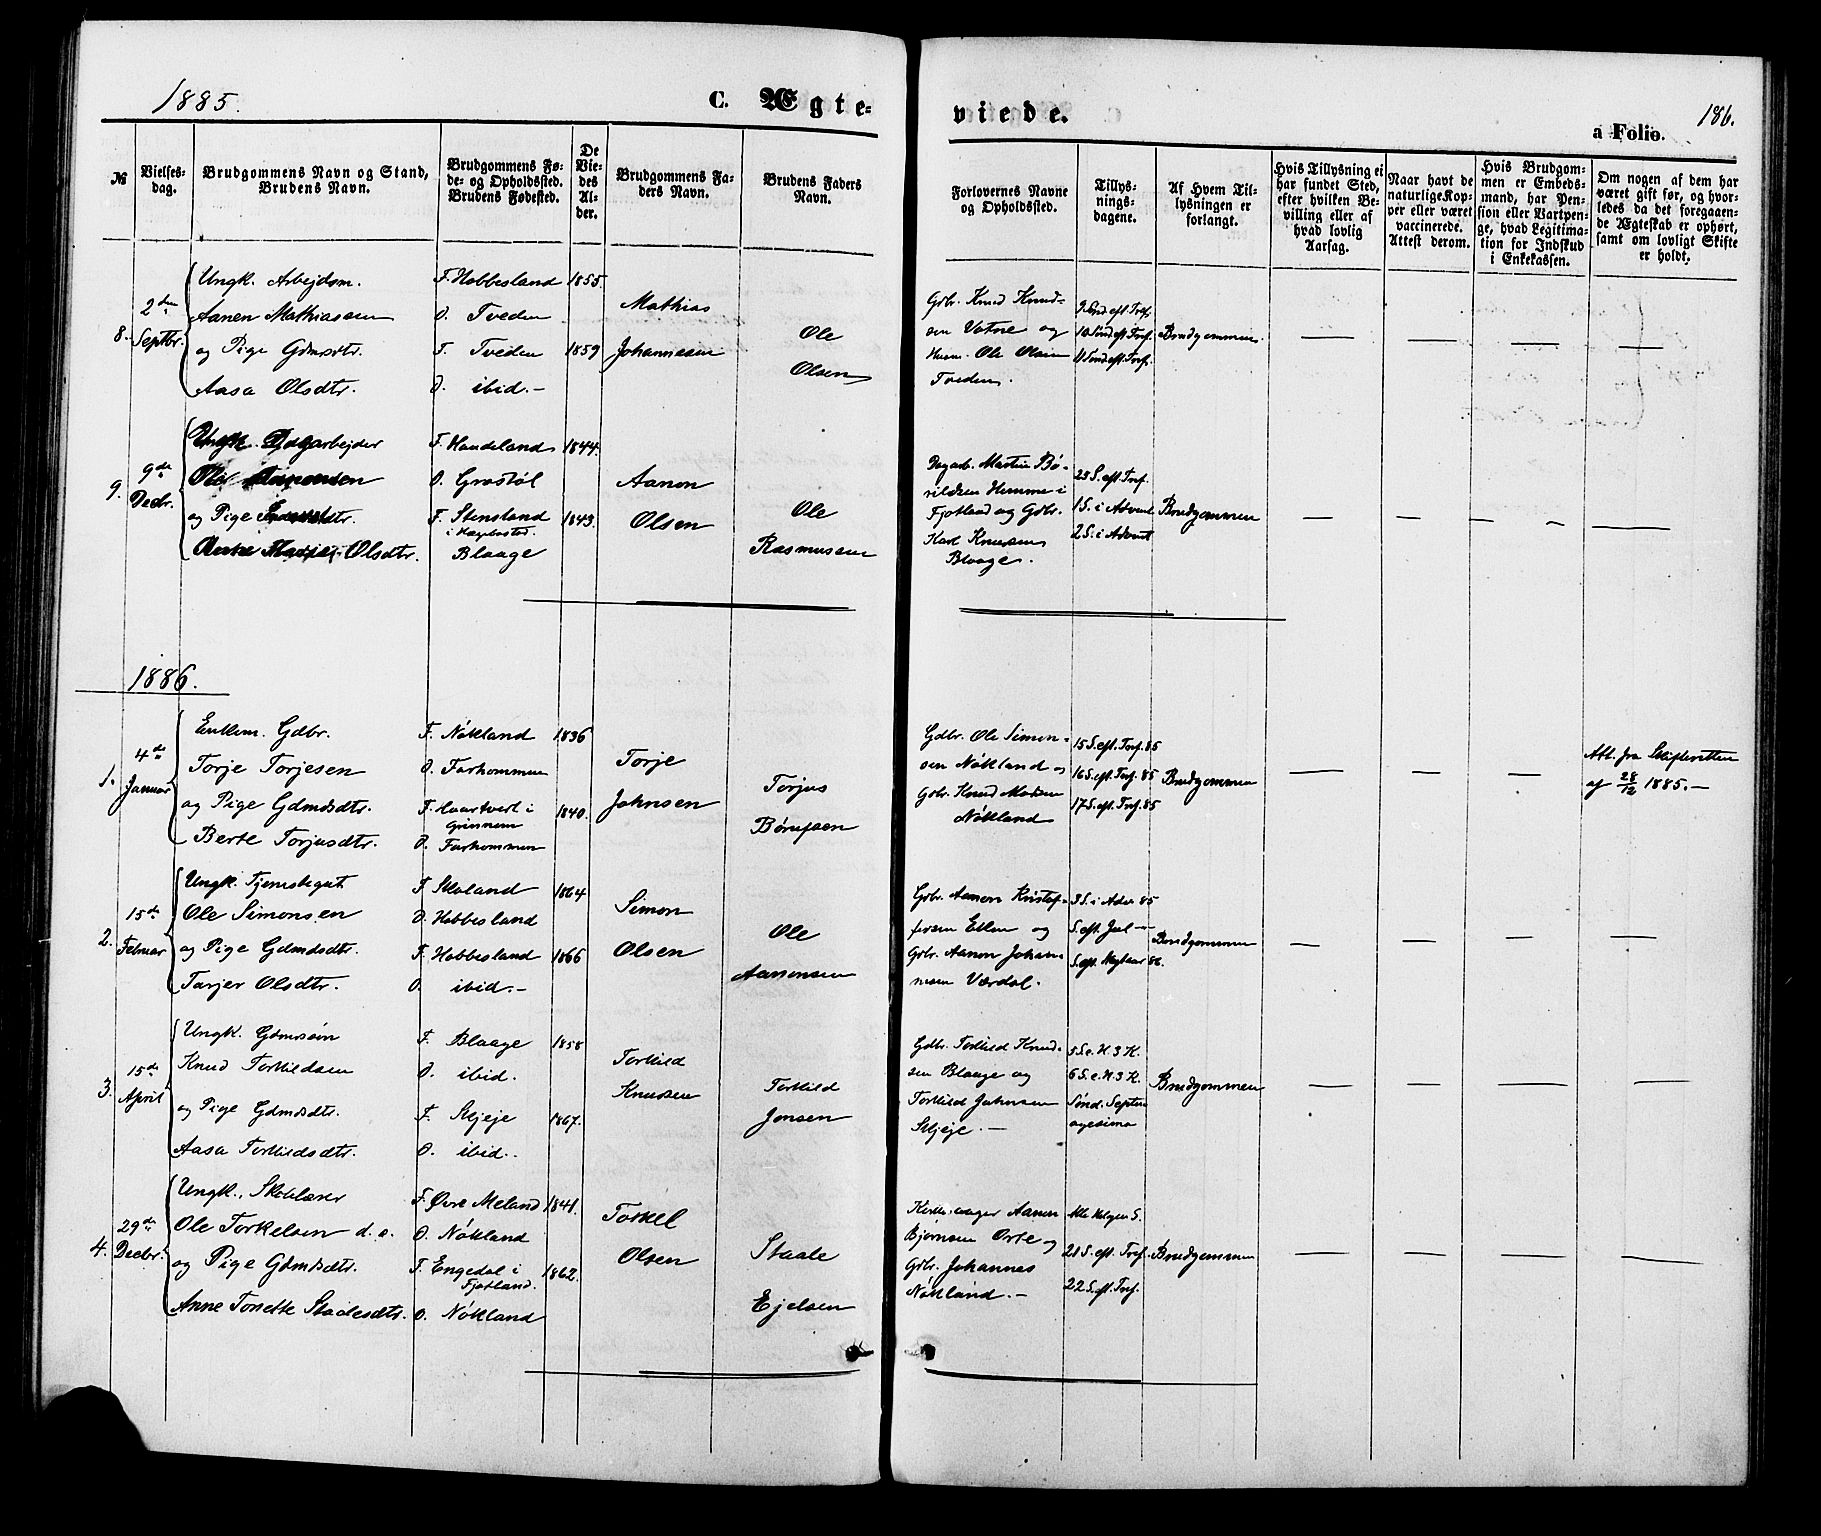 1885.
C. Ægte-
viede.
a Folio.
186.
№
Vielses-
dag.
Brudgommens Navn og Stand,
Brudens Navn.
Brudgommens Fø-
de- og Opholdssted.
Brudens Fødested.
De
Vie-
des
Al-
der.
Brudgommens Fa-
ders Navn.
Brudens Faders
Navn.
Forlovernes Navne
og Opholdssted.
Tillys-
nings-
dagene.
Af Hvem Til-
lysningen er
forlangt.
Hvis Tillysning ei
har fundet Sted,
efter hvilken Be-
villing eller af
hvad lovlig
Aarsag.
Naar havt de
naturlige Kop-
per eller været
vaccinerede.
Attest derom.
Hvis Brudgom-
men er Embeds-
mand, har Pen-
sion eller Vartpen-
ge, hvad Legitima-
tion for Indskud
i Enkekassen.
Om nogen af dem har
været gift før, og hvor-
ledes da det foregaaen-
de Ægteskab er ophørt,
samt om lovligt Skifte
er holdt.
8.
2den
Septbr.
Ungk. Arbejdsm.
Aanen Mathiassen
og Pige Gdmsdtr.
Aasa Olsdtr.
F. Hobbesland
O. Tveden
F. Tveden
O. ibid.-
1855.
1859
Mathias
Johannesen
Ole
Olsen
Gdbr. Knud Knud-
sen Vatne og
Husm. Ole Olsen
Tveden.
9. Sønd. eft. Tref.
10 Sønd eft. Tref.
11 Sønd eft. Tref.
Brudgommen.
9.
9de
Decbr.
Ungk. Dagarbejder
og Pige
Olsdtr.
F. Haudeland
O. Grostøl
F. Stensland
i Hægebostad.
Blaage
1844.
1843.
Aanon
Olsen
Ole
Rasmussen
Dagarb. Martin Bø-
rildsen Homme i
Fjotland og Gdbr.
Karl Knudsen
Blaage.
23 S. eft. Tref.
1 S. i Advent
2 S. i Advent
Brudgommen
1886.
1.
4de
Januar
Enkem. Gdbr.
Torje Torjesen
og Pige Gdmdsdtr.
Berte Torjusdtr.
F. Nökland
O. Farkommen
F. Haartveit i
Grinnem
O. Farkommen
1836
1840.
Torje
Johnsen
Torjus
Børufsen
Gdbr. Ole Simon-
sen Nökland og
Gdbr. Knud
Nökland
15 S. eft. Tref. 85
16 S. eft. Tref. 85
17 S. eft. Tref. 85
Brudgommen
Att. fra Skifteretten
af 28/12 1885.-
2.
15de
Februar
Ungk. Tjenstegut
Ole Simonsen
og Pige Gdmdsdtr.
Tarjer Olsdtr.
F. Skoland
O. Hobbesland
F. Hobbesland
O. ibid.-
1864
1866
Simon
Olsen
Ole
Aanonsen
Gdbr. Aanon Kristof-
fersen Etlen og
Gdbr. Aanon Johan-
nesen Værdal.
3 S. i Adv. 85
S. eft. Jul -
S. eft. Nytaar 86.
Brudgommen
3.
15de
April
Ungk. Gdmssøn
Knud Torkildsen
og Pige Gdmdsdtr.
Aasa Torkildsdtr.
F. Blaage
O. ibid.
F. Skjeje
O. ibid..
1858
1867.
Torkild
Knudsen
Torkild
Jonsen
Gdbr. Torkild Knud-
sen Blaage og
Torkild Johnsen
Skjeje. -
5 S. e. H. 3 K.
6 S. e. H. 3 K.
Sønd. Septua
agesima
Brudgommen
4.
29de
Decbr.
Ungk., Skolelærer
Ole Torkelsen d. e.
og Pige Gdmdsdtr.
Anne Tonette Staalesdtr.
F. Øvre Meland
O. Nökland
F. Engedal i
Fjotland.
O. Nökland
1841.
1862.
Torkel
Olsen
Staale
Ejelsen
Kirkesanger Aanen
Bjørnsen Orte og
Gdbr. Johannes
Nökland. -
Alle Helgen S.
21 S. eft. Tref.
22 S. eft. Tref.
Brudgommen